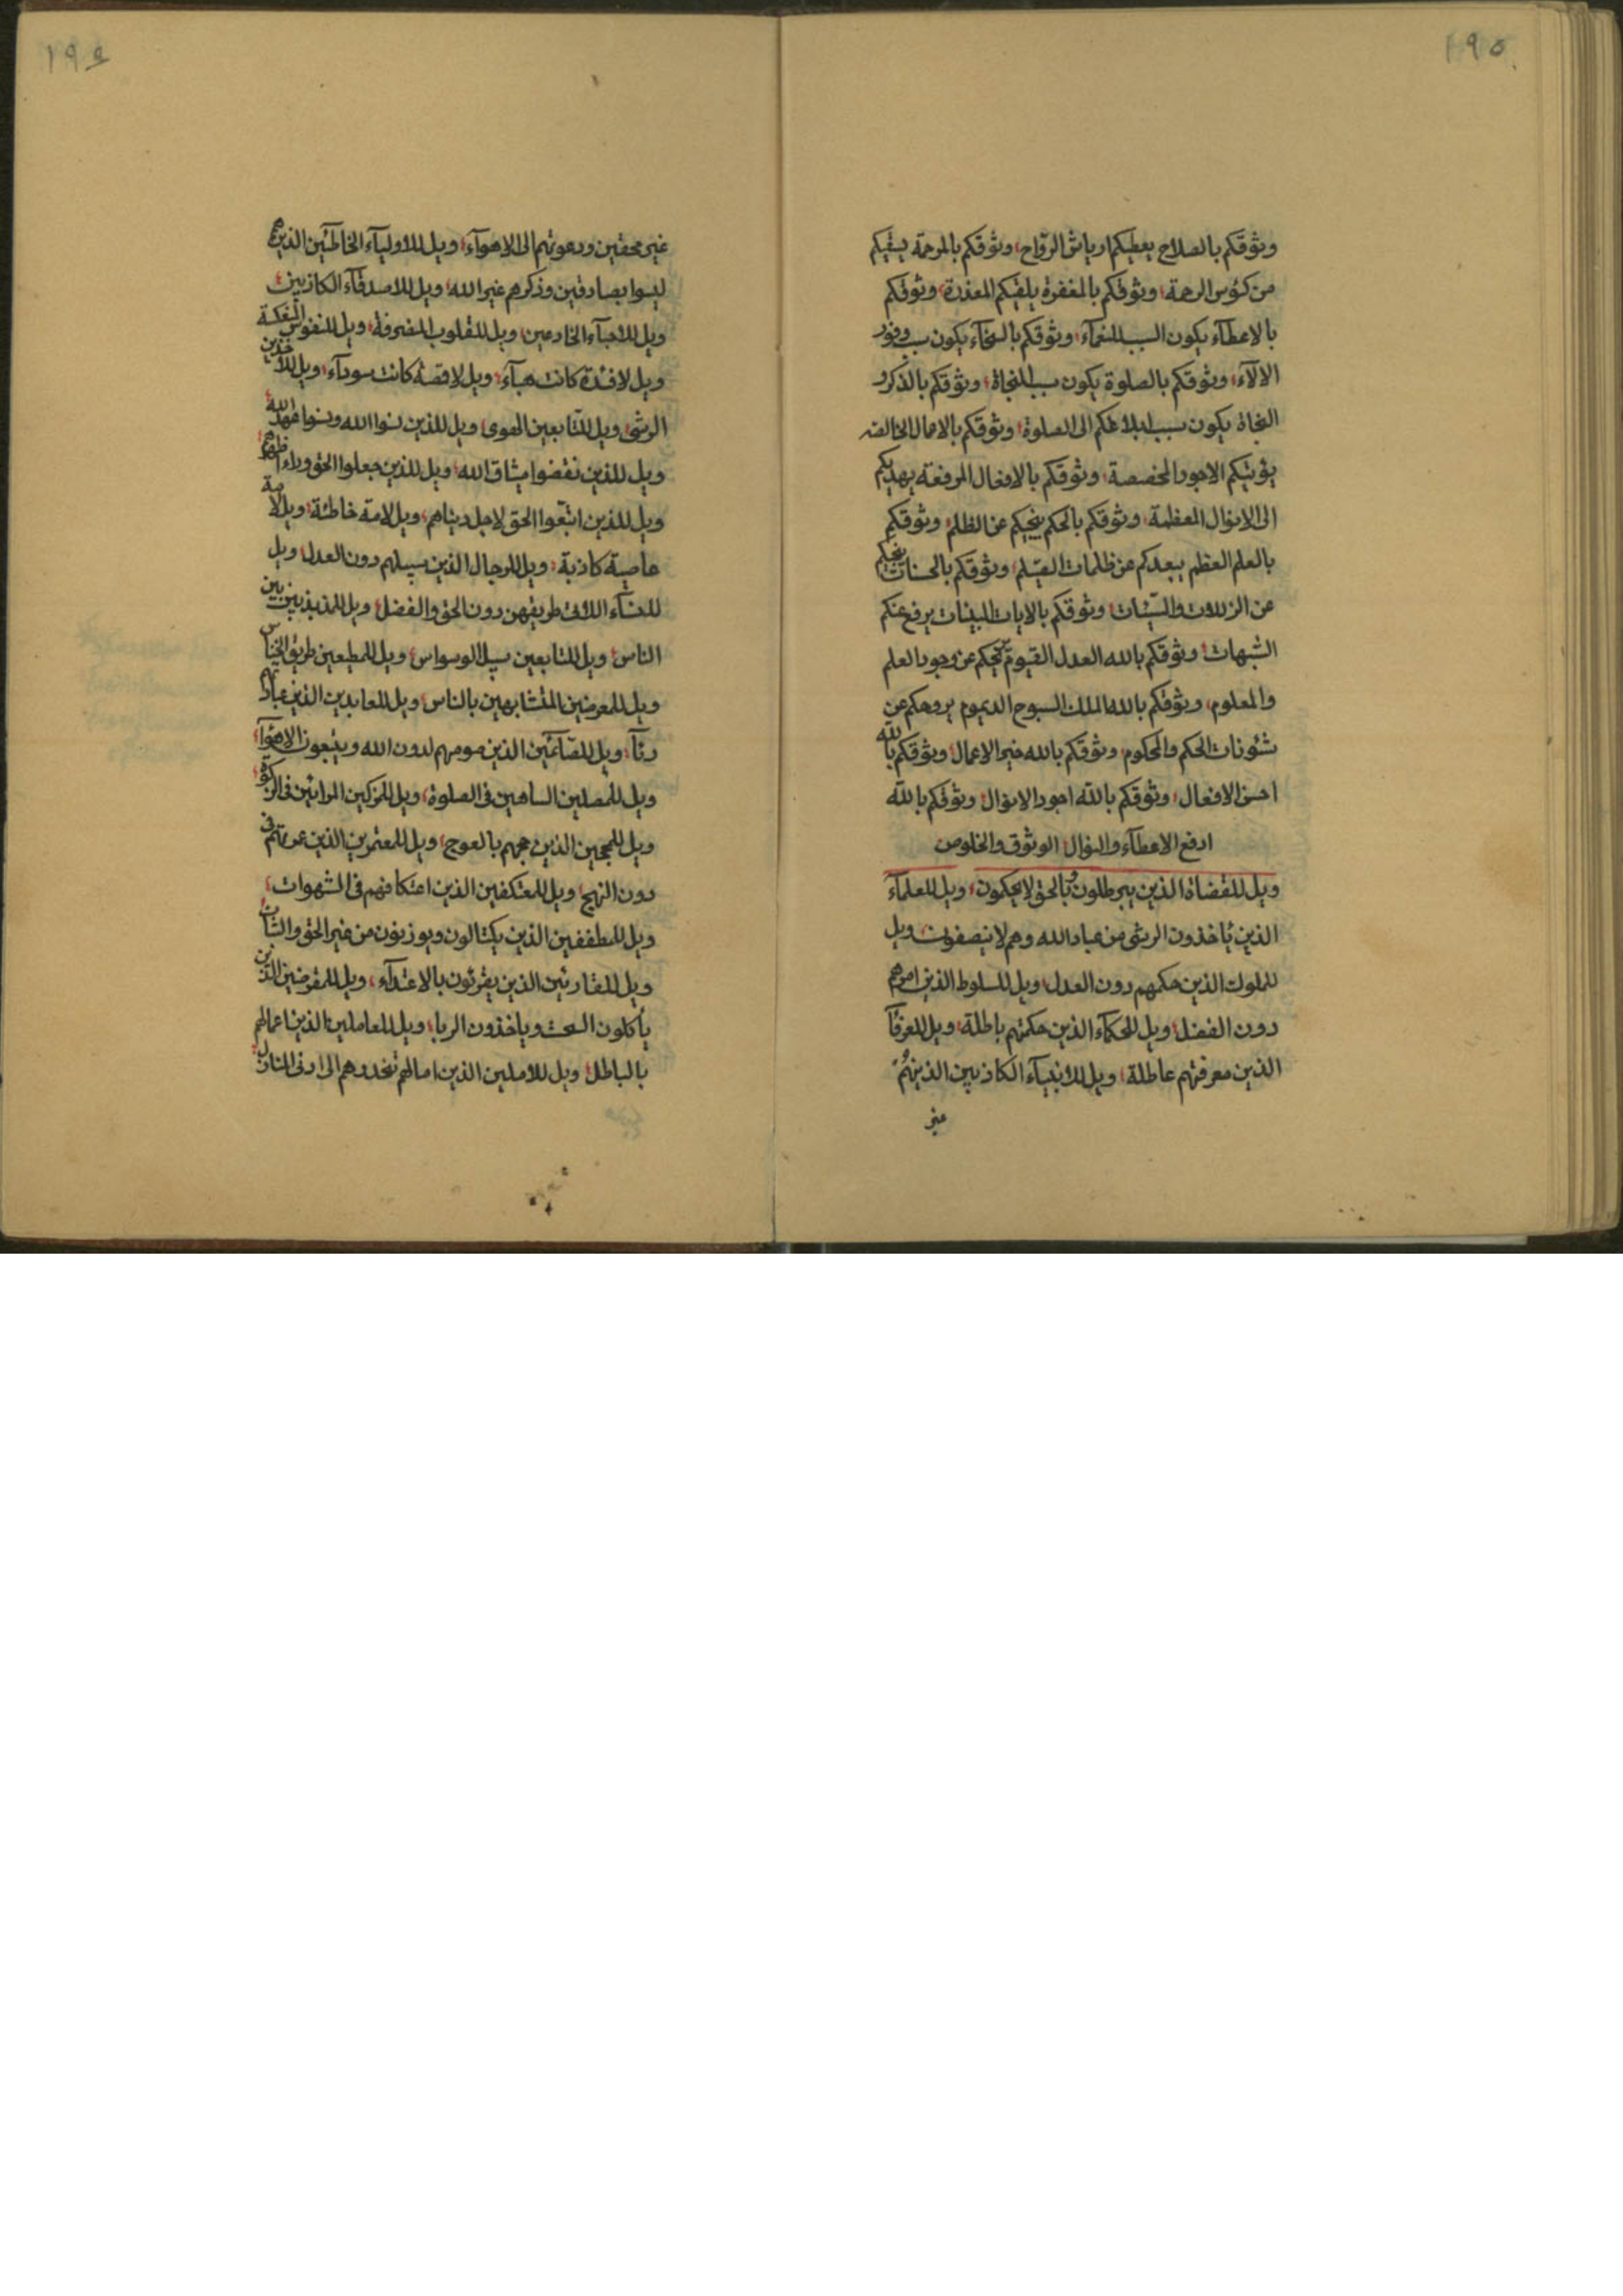 ١٩٥
وثوقكم بالصلاح يعطيكم ارياش الرواح، وثوقكم بالمرحمة يسقيكم
من كؤس الرحمة، وثوقكم بالمغفرة يلقيكم المعذرة، وثوقكم
بالاعطآء يكون السبب للنعمآء، وثوقكم بالسخآء يكون سبب وفور
الالآء، وثوقكم بالصلوة يكون سبب النجاة، وثوقكم بالذكر و
النجاة يكون سبب ابلاغكم الى الصلوة، وثوقكم بالاعمال الخالصه
يؤتيكم الاجور المخصصة، وثوقكم بالافعال المرفعة يهديكم
الى الانوال المعظمة، وثوقكم بالحكم ينجيكم عن الظلم، وثوقكم
بالعلم العظم يبعدكم عن ظلمات، وثوقكم بالحسنات ينجيكم
عن الزللات والسيّئات، وثوقكم بالايات البينات يرفع عنكم
الشبهات، وثوقكم بالله العدل القيوم عن وجود العلم
والمعلوم، وثوقكم بالله الملك السبوح الديموم عن
شئونات الحكم والمحكوم، وثوقكم بالله خير الاعمال، وثوقكم بالله
احسن الافعال، وثوقكم بالله اجود الانوال، وثوقكم بالله
ارفع الاعطآء والنوال، الوثوق والخلوص
ويل للقضاة الذين يبرطلون وبالحق لا يحكمون، ويل للعلمآء
الذين ياخذون الرشى من عباد الله وهم لا ينصفون، ويل
للملوك الذين حكمهم دون العدل، ويل للسلوط الذين امرهم
دون الفضل، ويل للحكمآء الذين حكمتهم باطلة، ويل للعرفآء
الذين معرفتهم عاطلة، ويل للانبيآء الكاذبين الذينهم
غير
١٩٤
غير محقين ودعوتهم الى الاهوآء، ويل للاوليآء الخاطئين الذينهم
ليسوا بصادقين وذكرهم غير الله، ويل للاصدقآء الكاذبين،
ويل للاحبآء الخادعين، ويل للقلوب المنصرفة، ويل للنفوس
ويل لافئدة كانت هبآء، ويل لاقصة كانت سودآء، ويل للآخذين
الرشى، ويل للتابعين الهوى، ويل للذين نسوا الله ونسوا عهد الله،
ويل للذين نقضوا ميثاق الله، ويل للذين جعلوا الحق ورآء اظهرهم،
ويل للذين اتبعوا الحق لاجل دنياهم، ويل لامة خاطئة، ويل لامة
عاصية كاذبة، ويل للرجال الذين سبيلهم دون العدل، ويل
للنسآء اللاتى طريقهن دون الحق والفضل، ويل للمذبذبين بين
الناس، ويل للتابعين سبيل الوسواس، ويل للمطيعين طريق الخناس
ويل للمعرضين المتشابهين بالناس، ويل للعابدين الذين عبادتهم
رئآء، ويل للصآئمين الذين صومهم لدون الله ويتبعون الاهوآء،
ويل للمصلين الساهين فى الصلوة، ويل للمزكين المرائين فى الزكوة،
ويل للمحجين الذين حجهم بالعوج، ويل للمعتمرين الذين عمرتهم فى
دون النهج، ويل للمعتكفين الذين اعتكافهم فى الشهوات،
ويل للمطففين الذين يكتالون ويوزنون من غير الحق والثبات،
ويل للقارئين الذين يقرئون بالاعتدآء، ويل للمقرضين الذين
يأكلون السحت وياخذون الربا، ويل للعاملين الذين اعمالهم
بالباطل، ويل للاملين الذين امالهم تحدوهم الى ادنى المنازل،